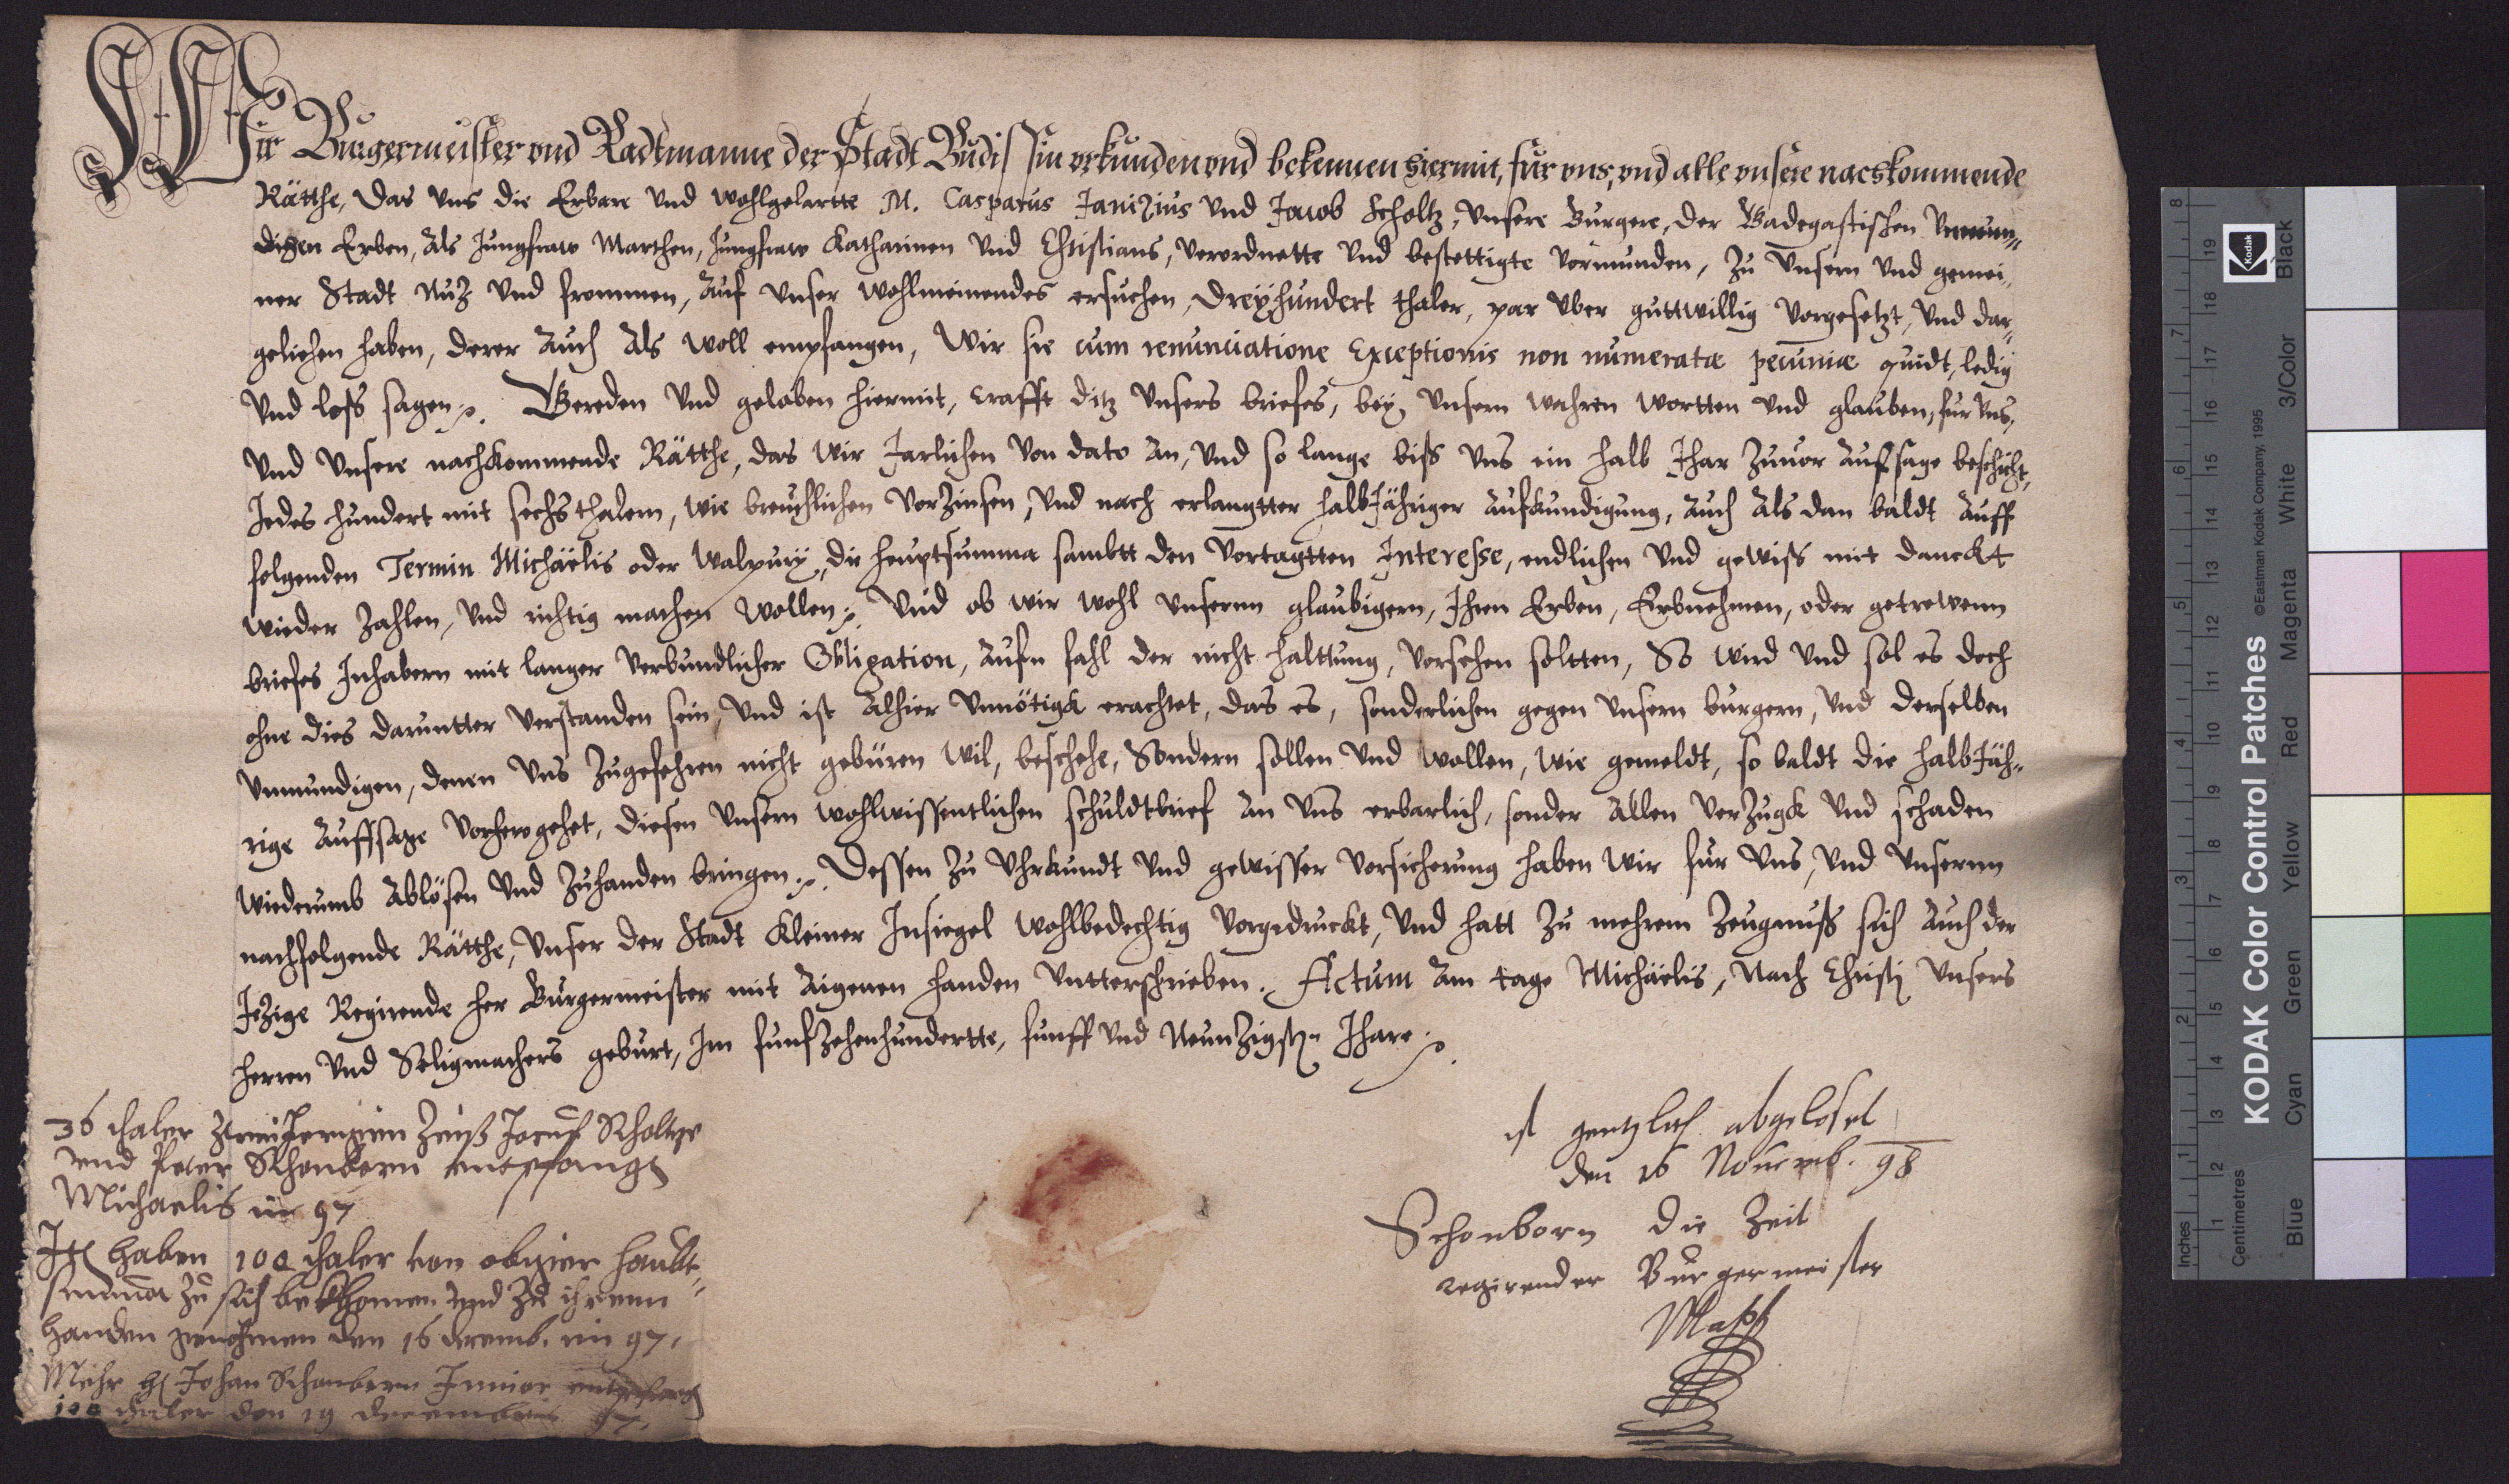 Wir Burgermeister vnd Radtmanne der Stadt Budissin vrkunden vnd bekennen hiermit, für vns, vnd alle vnsere nachkommende
Rätthe, das vns die Erbare vnd wohlgelartte M. Casparus Janizius vnd Jacob Scholtz, vnsere Burgere, der Badegastischen vnmun„
digen Erben, Als Jungfraw Marthen, Jungfraw Katharinen vnd Christians, verordnette vnd bestettigte vormunden, zu vnsern vnd gemei„
ner Stadt nuz vnd frommen, Auf vnser wohlmeinendes ersuchen, dreyhundert thaler, par vber guttwillig vorgesetzt, vnd dar„
geliehen haben, derer Auch Als woll empfangen, Wir sie cum renunciatione Exceptionis non numeratæ pecuniæ quidt, ledig
vnd loss sagen. Gereden vnd geloben hiermit, crafft ditz vnsers briefes, bey vnsern wahren wortten vnd glauben, fur vns,
vnd vnsere nachkommende Rätthe, das wir Jarlichen von dato An, vnd so lange biss vns ein halb Jhar zuuor Aufsage beschicht,
Jedes hundert mit sechs thalern, wie breuchlichen vorzinsen, vnd nach erlangtter halbJähriger Aufkundigung, Auch Als dan baldt Auff
folgenden Termin Michäelis oder Walpurij, die heuptsumma sambtt den vortagtten Interesse, endlichen vnd gewiss mit danckt
wieder zahlen, vnd richtig machen wollen. Vnd ob wir wohl vnsernn glaubigern, Ihren Erben, Erbnehmen, oder getrewenn
briefes Inhabern mit langer verbundlicher Obligation, Aufn fahl der nicht halttung, vorsehen soltten, So wird vnd sol es doch
ohne dies daruntter verstanden sein, vnd ist Alhier vnnötigk erachtet, das es, sonderlichen gegen vnsern burgern, vnd derselben
vnmundigen, denen vns zugefehren nicht gebüren wil, beschehe, Sondern sollen vnd wollen, wie gemeldt, so baldt die halbJäh„
rige Auffsage vorhergehet, diesen vnsern wohlwissentlichen schuldtbrief An vns erbarlich, sonder Allen verzugk vnd schaden
wiederumb Ablösen vnd zuhanden bringen. Dessen zu vhrkundt vnd gewisser vorsicherung haben wir fur vns, vnd vnsernn
nachfolgende Rätthe, vnser der Stadt kleiner Insiegel wohlbedechtig vorgedruckt, vnd hatt zu mehrem zeugnuss sich Auch der
Jzige Regirende her Burgermeister mit Aigenen handen vntterschrieben. Actum Am tage Michäelis, Nach Christj vnsers
herren vnd Seligmachers geburt, Im funfzehenhundertte, funff vnd Neunzigsten Jhare.
36 thaler Zins Jacuf Scholtze
vnd Peter Schonborn entpfangen
Michaelis im 97
haben 100 thaler von obgier haubt„
summa zu sich bekhomen vnd zu ihrenn
handen genohmen den 16 decemb. im 97.
Mehr H Johan Schonborn Junior entpfangen
100 thaler den 19 decembris 97.
ist gentzlich abgeloset
den 16 Nouemb. 98
Schonborn die Zeit
regirender Burgermeister
Inches 1 2 3 4 5 6 7 8
Centimetres 1 2 3 4 5 6 7 8 9 10 11 12 13 14 15 16 17 18 19
KODAK Color Control Patches ©Eastman Kodak Company, 1995 Kodak
Blue Cyan Green Yellow Red Magenta White 3/Color Black